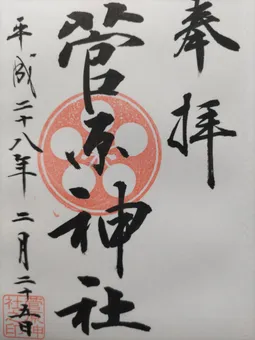 奉拝
菅原神社
平成二十八年二月二十五日